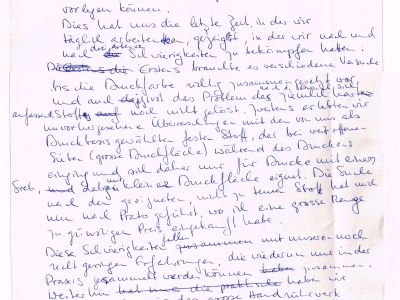 vorlegen können.
Dies hat uns die letzte Zeit, in der wir
täglich arbeiteten, gezeigt, in der wir nach und
nach drei Schwierigkeiten zu bekämpfen hatten:
Erstens brauchte es verschiedene Versuche
bis die Druckfarbe völlig zusammengesetzt war,
und auch jetzt ist das Problem des ziemlich
Stoffes noch nicht gelöst. Zweitens erlebten wir
unvorhergesehene Überraschungen mit den von uns als
Druckbasis gewählten festen Stoff, der bei weit offenen
Sieben (grosse Druckfläche) während des Druckens
einging und sich daher nur für Drucke mit einem
Sieb, mit kleiner Druckfläche eignet. Die Suche
nach dem geeigneten, nicht zu teuren Stoff hat uns
nun nach Prato geführt, wo ich eine grosse Menge
zu günstigen Preis eingekauft habe.
Diese Schwierigkeiten fallen zusammen mit unseren noch
recht geringen Erfahrungen, die wiederum nur in der
Praxis gesammelt werden können zusammen.
Weiterhin hat uns die praktische haben wir
grosse Handrührwerk